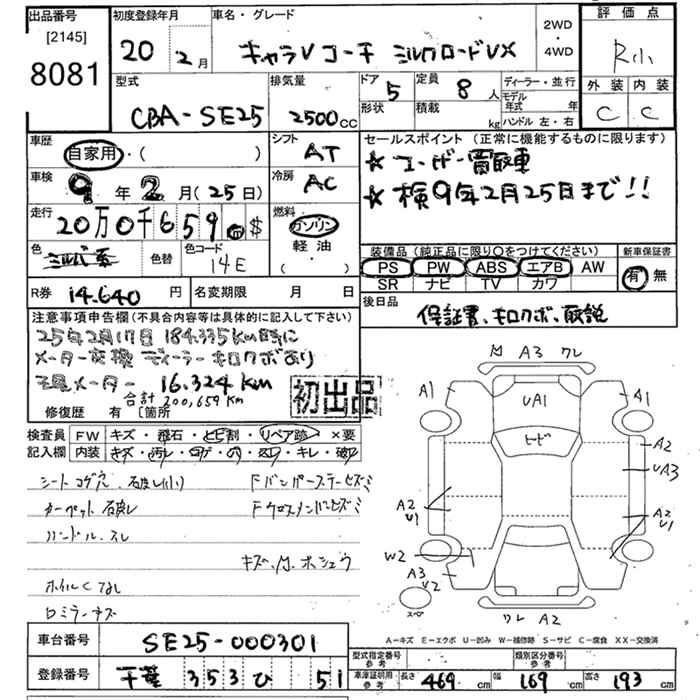 出品番号
[2145]
8081
初度登録年月
20年2月
車名・グレード
キャラV コーチ ミルクロードVX
2WD・4WD
評価点
R小
外装 内装
C C
型式
CBA-SE25
排気量
2500CC
ドア 5
形状
定員 8人
積載 kg
ディーラー・並行
モデル年式 年
ハンドル 左・右
車歴
自家用・( )
シフト
AT
セールスポイント (正常に機能するものに限ります)
☆ ユーザー買取車
☆ 検9年2月25日まで!!
車検
9年2月(25日)
冷房
AC
走行
20万0千659㎞ $
燃料
ガソリン
軽油
・( )
色
ミルバ系
色替
色コード
14E
装備品 (純正品に限り○をつけてください)
PS PW ABS エアB AW
SR ナビ TV カワ
新車保証書
有 無
R券 14,640円
名変期限 月 日
後日品
保証書、キロクボ、取説
注意事項申告欄(不具合内容等は具体的に記入して下さい)
25年2月17日 184,335km時に
メーター交換 ディーラーキロクボあり
現メーター 16,324km
合計 200,659km
修復歴 有 〔箇所
初出品
検査員記入欄
FW キズ・飛石・とび割・リペア跡・×要
内装 キズ・汚レ・コゲ・穴・スレ・キレ・破レ
シートコゲ穴、破レ(小)
Fバンパーステーヒズミ
カーペット破レ
Fクロスメンバーヒズミ
ハンドル、スレ
キズ、M、ボショウ
ホイルCなし
ロミラーキズ
M A3 ワレ
A1 UA1 A1
ヒビ A2
UA3
A2 U1
A2 U1
W2
A3 U2
スペア
ワレ A2
A-キズ E-エクボ U-凹み W-補修跡 S-サビ C-腐食 XX-交換済
車台番号 SE25-000301
登録番号 千葉 353 ひ 51
型式指定番号 参考
類別区分番号 参考
車庫証明用参考 長さ 469cm 幅 169cm 高さ 193cm